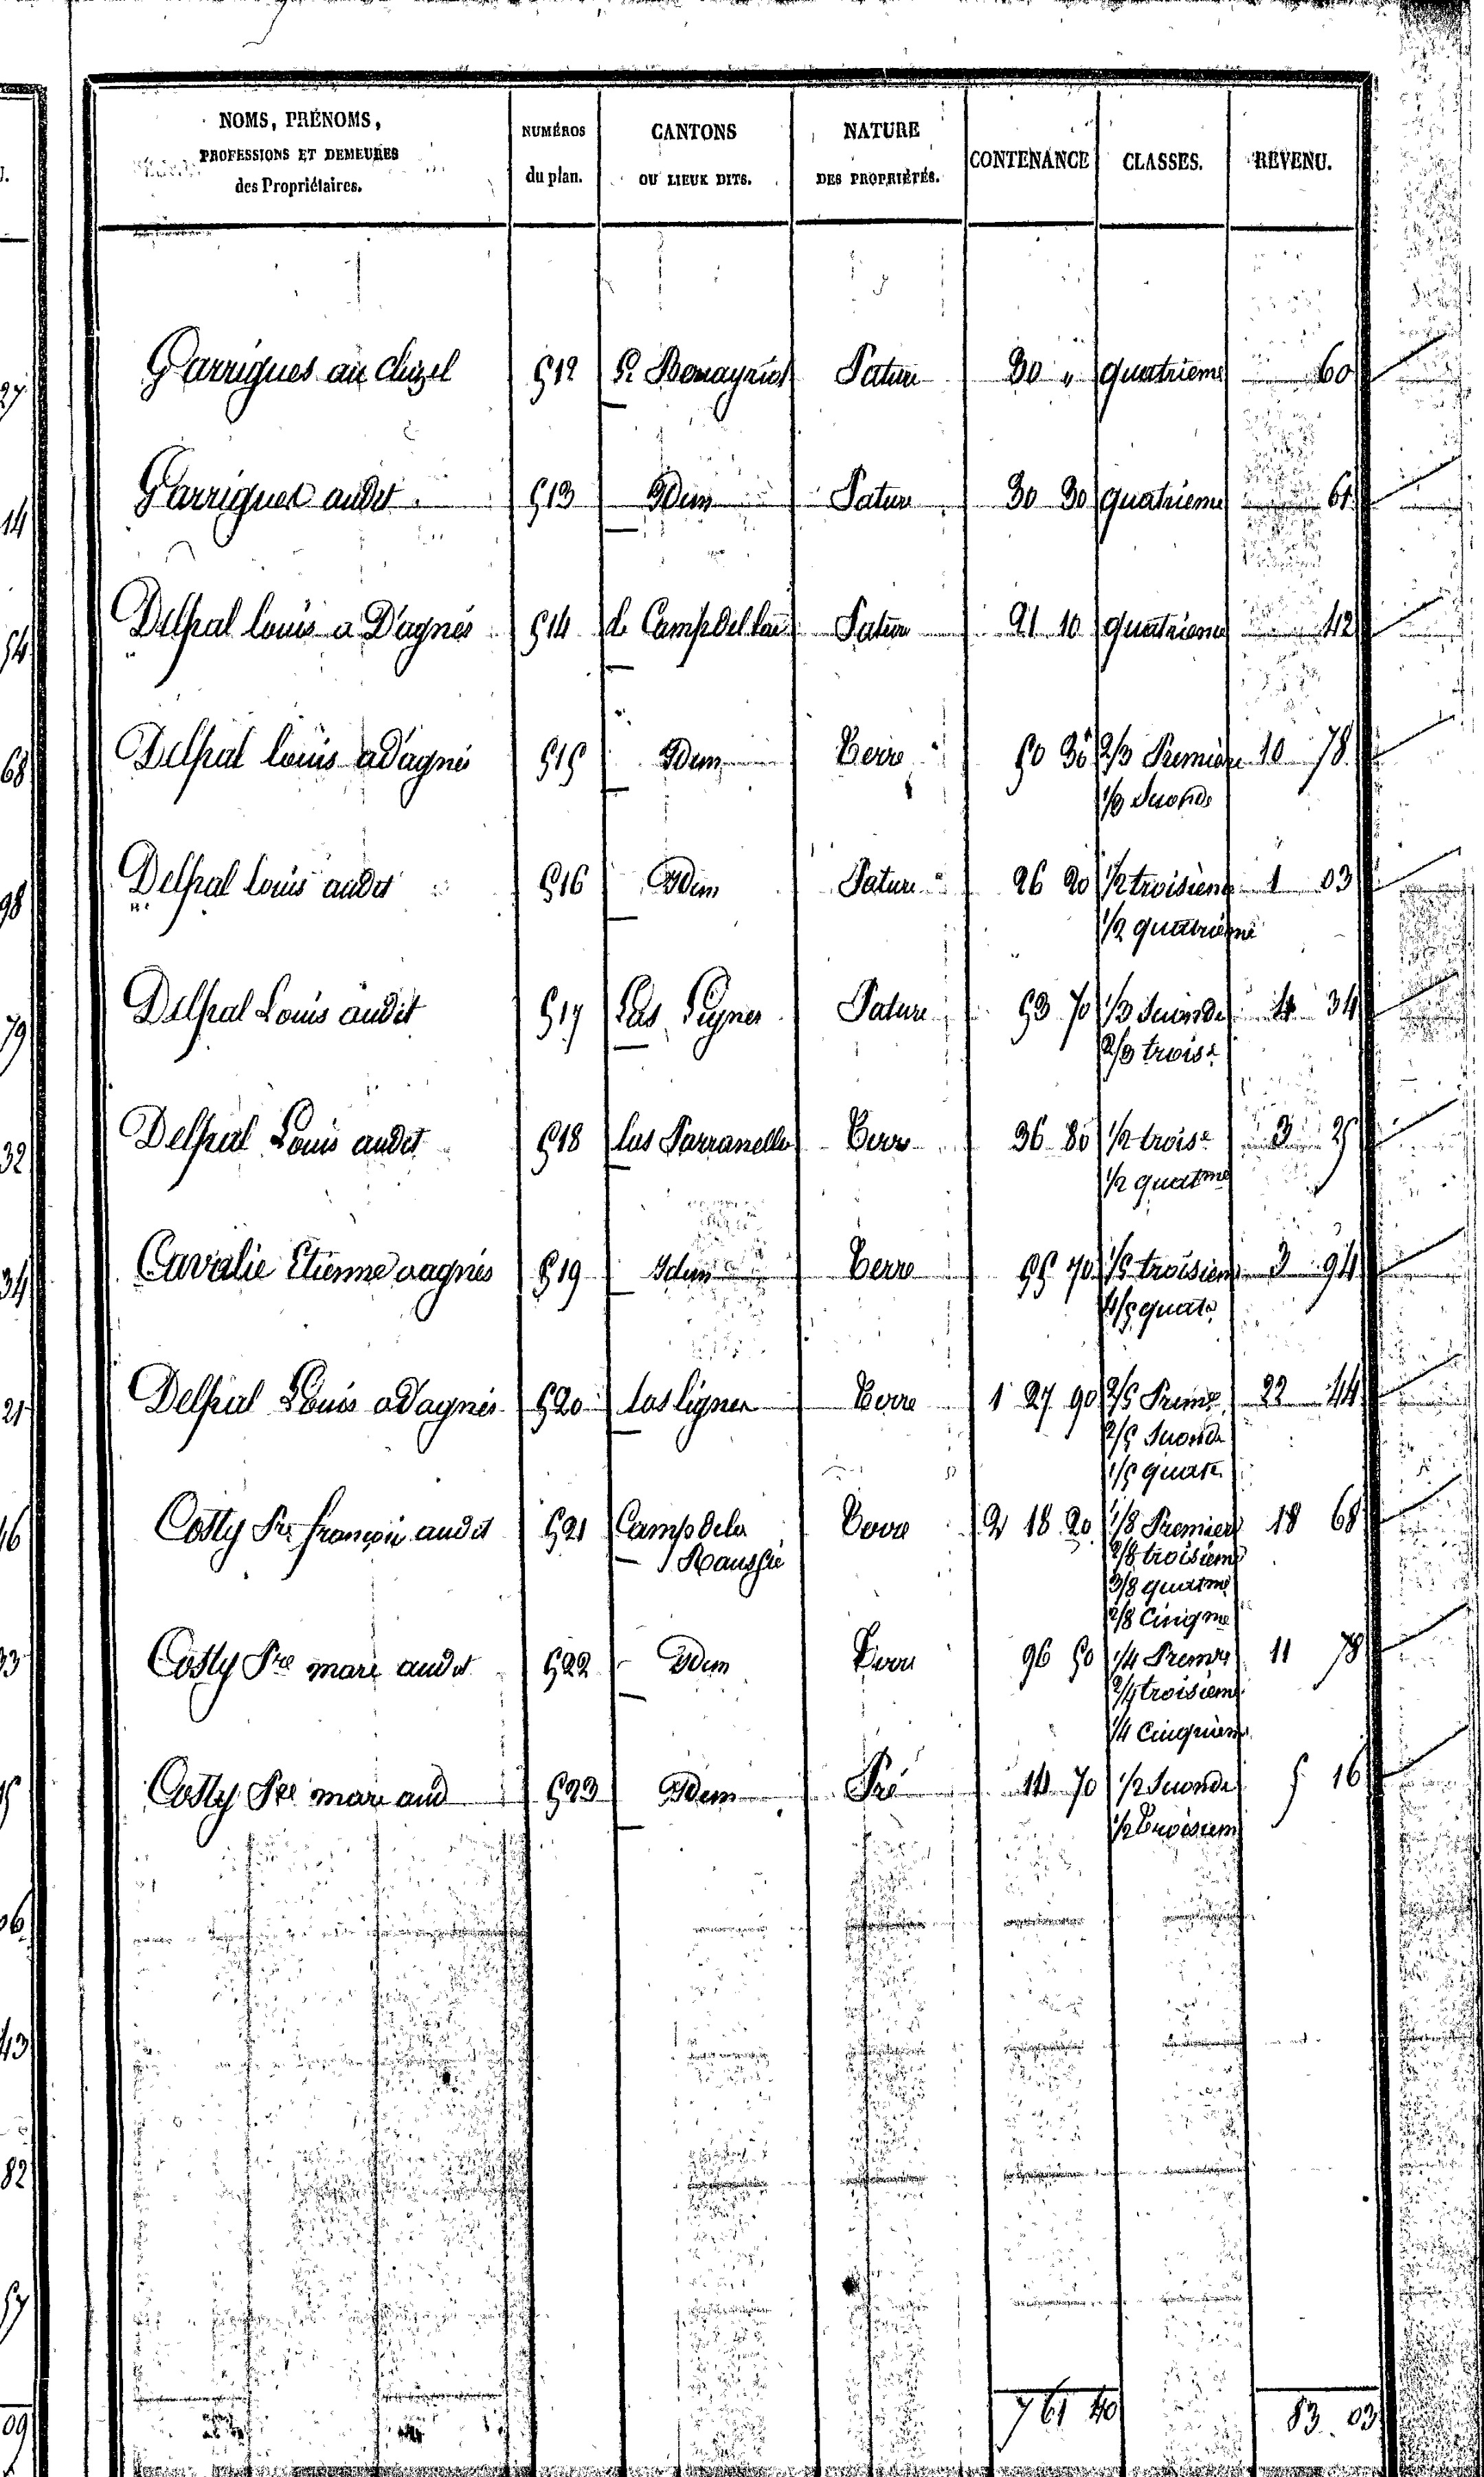 NOMS, PRÉNOMS, PROFESSIONS ET DEMEURES des Propriétaires. NUMÉROS du plan. CANTONS OU LIEUX DITS. NATURE DES PROPRIÉTÉS. CONTENANCE CLASSES. REVENU.
Garrigues au 512 Pature 30 " quatrieme 60
Garrigues audit 513 Idem Pature 30 30 quatrieme 61
Delpal louis a D'agnes 514 Pature 21 10 quatrieme 42
Delpal louis a D'agnes 515 Idem Terre 50 30 2/3 Premiere 10 78
1/3 Seconde
Delpal Louis audit 516 Idem Pature 26 20 1/2 troisieme 1 03
1/2 quatrieme
Delpal Louis audit 517 Las Pature 53 70 1/3 Seconde 4 34
2/3 trois.e
Delpal Louis audit 518 las Terre 36 80 1/2 trois.e 3 25
1/2 quatme
Cavalie Etienne d'agnes 519 Idem Terre 55 70 1/5 troisieme 3 94
4/5 quate
Delpal Louis a D'agnes 520 Las lignes Terre 1 27 90 2/5 Preme 22 44
2/5 Seconde
1/5 quate
Costy Pre françois audit 521 Camp dela Terre 2 18 20 1/8 Premiere 18 68
2/8 troisieme
3/8 quatme
2/8 Cinqme
Costy Pre mari audit 522 Idem Terre 96 50 1/4 Premre 11 78
2/4 troisieme
1/4 Cinquieme
Costy Pre mari aud 523 Idem Pré 14 70 1/2 Seconde 5 16
1/2 Troisieme
7 61 40 83 03